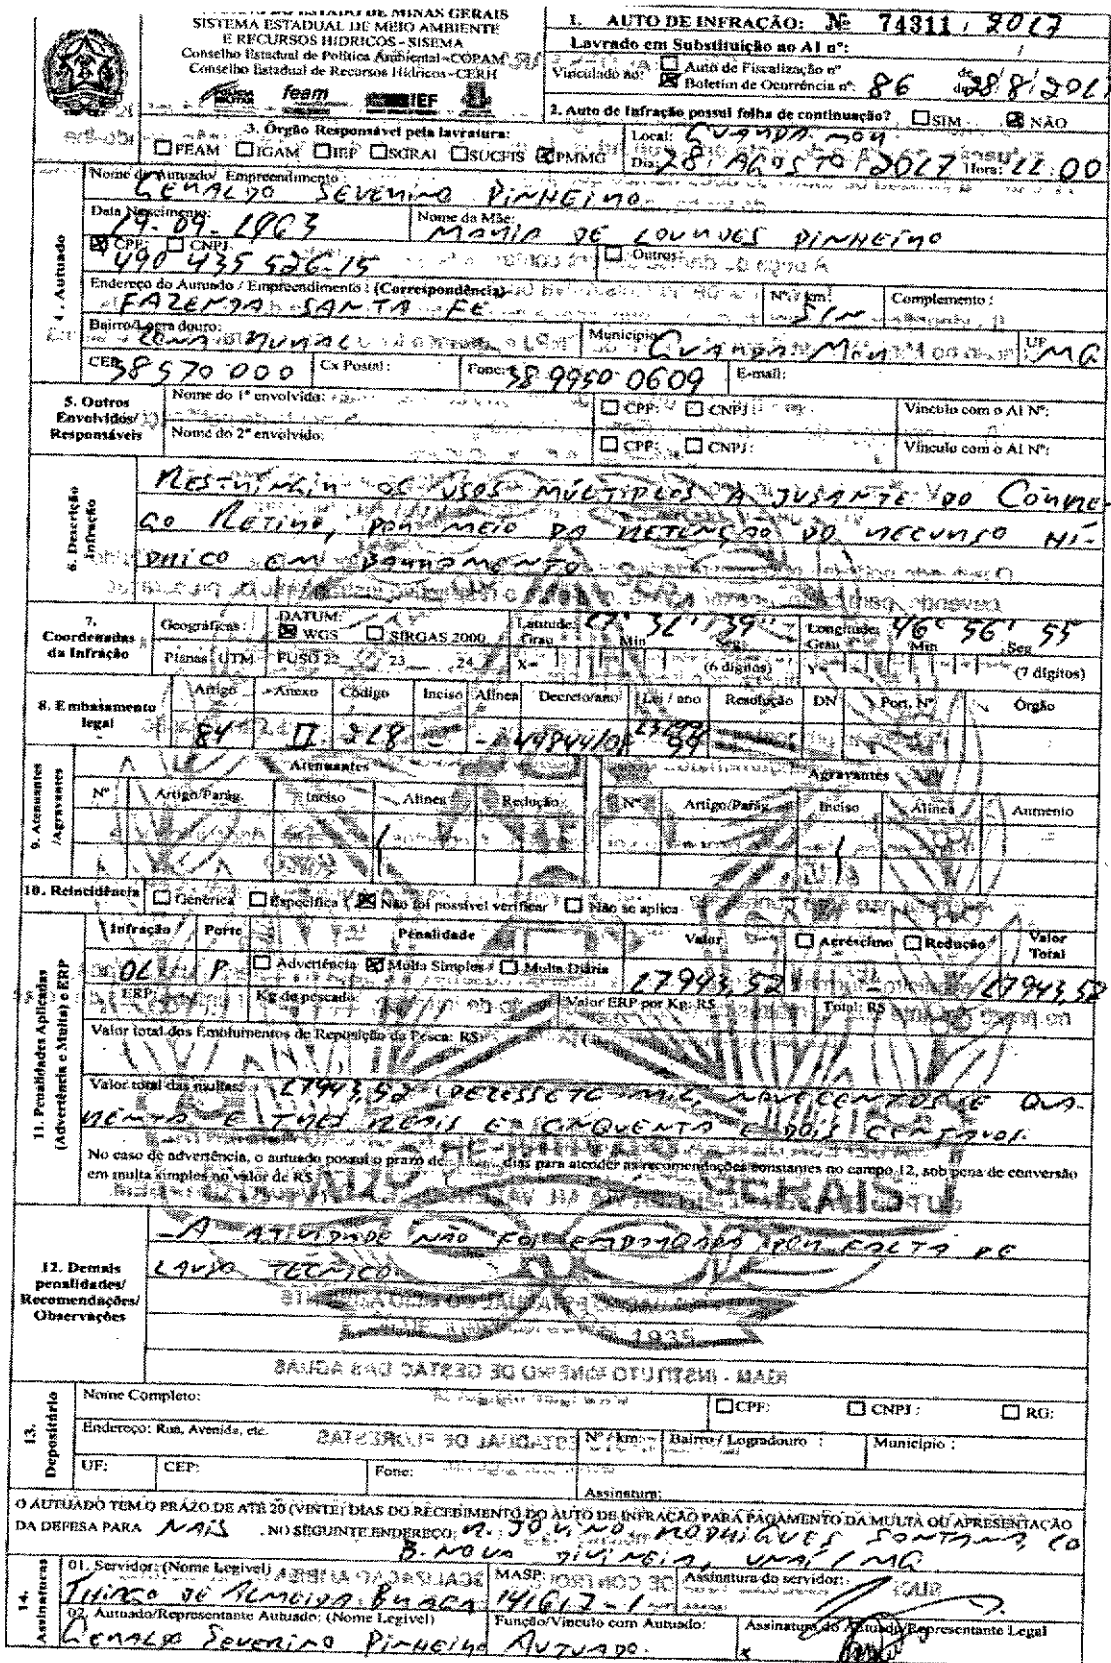 SISTEMA ESTADUAL DE MEIO AMBIENTE
E RECURSOS HÍDRICOS - SISEMA
Conselho Estadual de Política Ambiental - COPAM
Conselho Estadual de Recursos Hídricos - CERH
feam IEF
1. AUTO DE INFRAÇÃO: Nº 74311 / 2017
Lavrado em Substituição ao AI nº: /
Vinculado ao: ☐ Auto de Fiscalização nº
☒ Boletim de Ocorrência nº: 86 de 28/8/201
2. Auto de Infração possui folha de continuação? ☐ SIM ☒ NÃO
3. Órgão Responsável pela lavratura:
☐ FEAM ☐ IGAM ☐ IEF ☐ SGRAI ☐ SUCFIS ☒ PMMG
Local: GUARDA-MOR
Dia: 28 / AGOSTO / 2017 Hora: 11:00
4. Autuado
Nome do Autuado/ Empreendimento:
GERALDO SEVERINO PINHEIRO
Data Nascimento: 19-09-1963
Nome da Mãe: MARIA DE LOURDES PINHEIRO
☒ CPF: ☐ CNPJ: 490 435 526-15 ☐ Outros:
Endereço do Autuado / Empreendimento: (Correspondência)
FAZENDA SANTA FÉ Nº / km: S/N Complemento:
Bairro/Logradouro: ZONA RURAL Município: GUARDA MOR UF MG
CEP: 38570 000 Cx Postal: Fone: 38 9950 0609 E-mail:
5. Outros Envolvidos/ Responsáveis
Nome do 1º envolvido: ☐ CPF: ☐ CNPJ: Vínculo com o AI Nº:
Nome do 2º envolvido: ☐ CPF: ☐ CNPJ: Vínculo com o AI Nº:
6. Descrição Infração
RESTRINGIR OS USOS MÚLTIPLOS A JUSANTE DO CÓRRE-
GO RETIRO, POR MEIO DA RETENÇÃO DO RECURSO HÍ-
DRICO EM BARRAMENTO
7. Coordenadas da Infração
Geográficas: DATUM: ☒ WGS ☐ SIRGAS 2000 Latitude: Grau 17° Min 31' Seg 39" Longitude: Grau 46° Min 56' Seg 55
Planas UTM FUSO 22 23 24 X= (6 dígitos) Y= (7 dígitos)
8. Embasamento legal
Artigo Anexo Código Inciso Alínea Decreto/ano Lei / ano Resolução DN Port. Nº Órgão
84 II 218 - - 44844/08 13199 99
9. Atenuantes /Agravantes
Atenuantes Agravantes
Nº Artigo/Parág. Inciso Alínea Redução Nº Artigo/Parág. Inciso Alínea Aumento
10. Reincidência ☐ Genérica ☐ Específica ☒ Não foi possível verificar ☐ Não se aplica
11. Penalidades Aplicadas (Advertência e Multa) e ERP
Infração Porte Penalidade Valor ☐ Acréscimo ☐ Redução Valor Total
01 P ☐ Advertência ☒ Multa Simples ☐ Multa Diária 17943,52 - 17943,52
ERP: Kg de pescado: Valor ERP por Kg: R$ Total: R$
Valor total dos Emolumentos de Reposição da Pesca: R$
Valor total das multas: 17943,52 (DEZESSETE MIL, NOVECENTOS E QUA-
RENTA E TRÊS REAIS E CINQUENTA E DOIS CENTAVOS.
No caso de advertência, o autuado possui o prazo de dias para atender as recomendações constantes no campo 12, sob pena de conversão
em multa simples no valor de R$
12. Demais penalidades/ Recomendações/ Observações
- A ATIVIDADE NÃO FOI EMBARGADA POR FALTA DE
LAUDO TÉCNICO.
1935
13. Depositário
Nome Completo: ☐ CPF: ☐ CNPJ: ☐ RG:
Endereço: Rua, Avenida, etc. Nº / km: Bairro / Logradouro : Município :
UF: CEP: Fone: Assinatura:
O AUTUADO TEM O PRAZO DE ATÉ 20 (VINTE) DIAS DO RECEBIMENTO DO AUTO DE INFRAÇÃO PARA PAGAMENTO DA MULTA OU APRESENTAÇÃO
DA DEFESA PARA NAIS . NO SEGUINTE ENDEREÇO: R. JOVINO RODRIGUES SANTANA, 10
B. NOVA DIVINEIA, UNAÍ / MG
14. Assinaturas
01. Servidor: (Nome Legível) MASP: Assinatura do servidor:
THIAGO DE ALMEIDA BRAGA 141617-1
02. Autuado/Representante Autuado: (Nome Legível) Função/Vínculo com Autuado: Assinatura do Autuado/Representante Legal
GERALDO SEVERINO PINHEIRO AUTUADO.